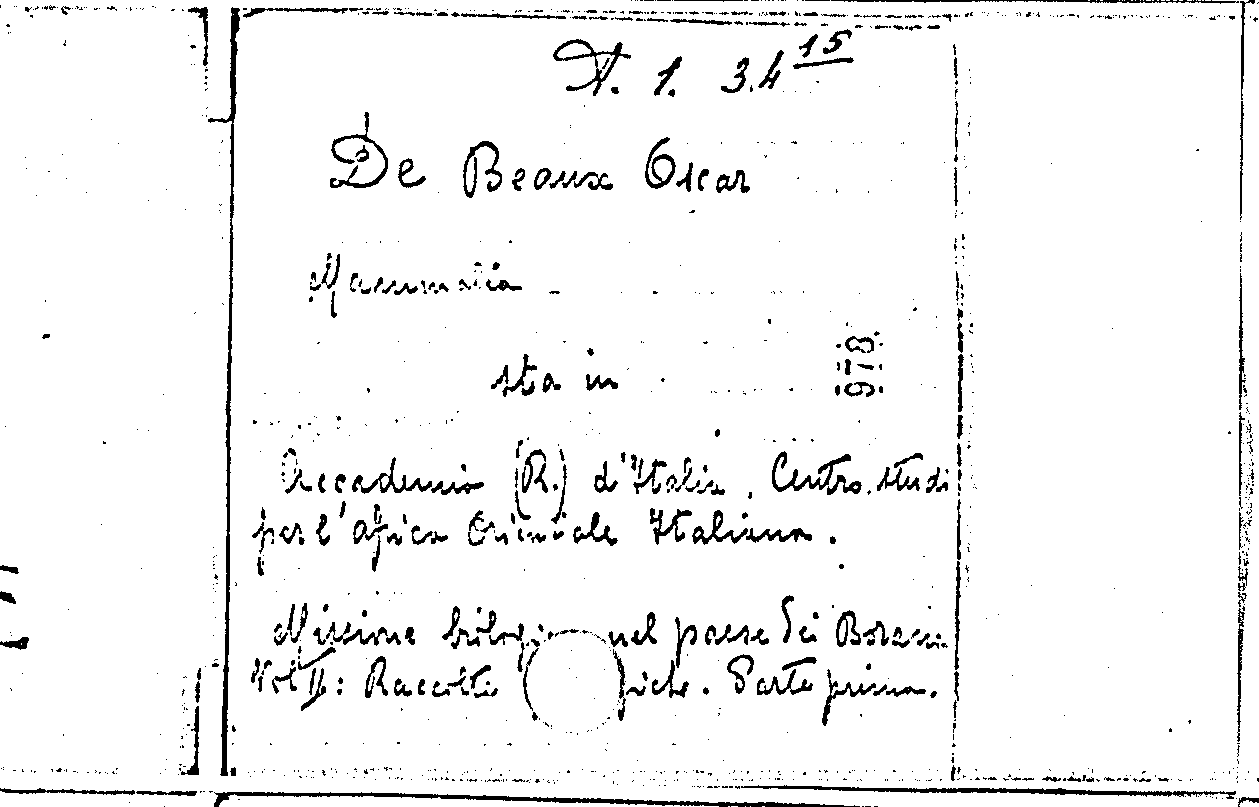 A. 1. 34 15
De Beaux Oscar
Mammalia
sta in
978
Accademia (R.) d'Italia. Centro studi
per l'Africa Orientale Italiana.
Missione biologi nel paese dei Borana.
Vol II: Raccolte fiche. Parte prima.